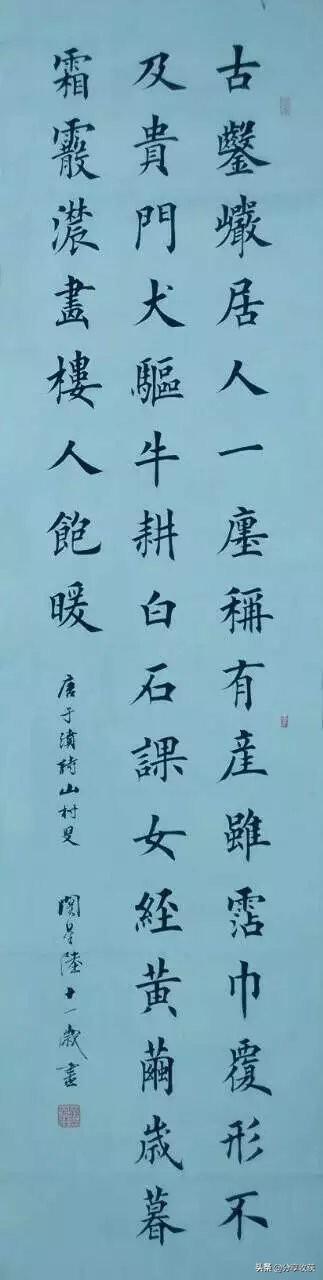 古鑿巖居人一廛稱有產雖霑巾覆形不
及貴門犬驅牛耕白石課女經黃繭歲暮
霜霰濃畫樓人飽暖
唐于濆詩山村叟
星陸十一歲書
头条 @分享收获